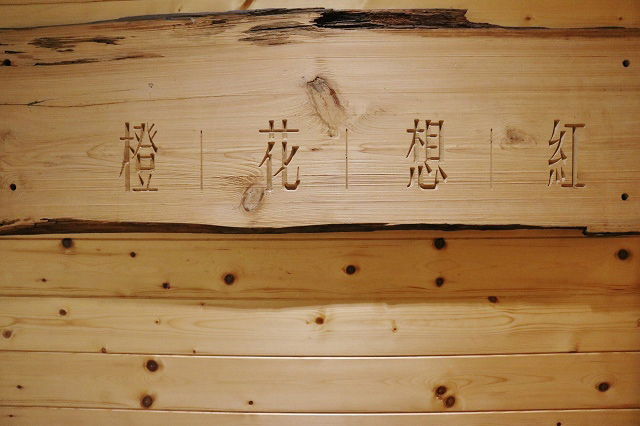 橙｜花｜想｜紅